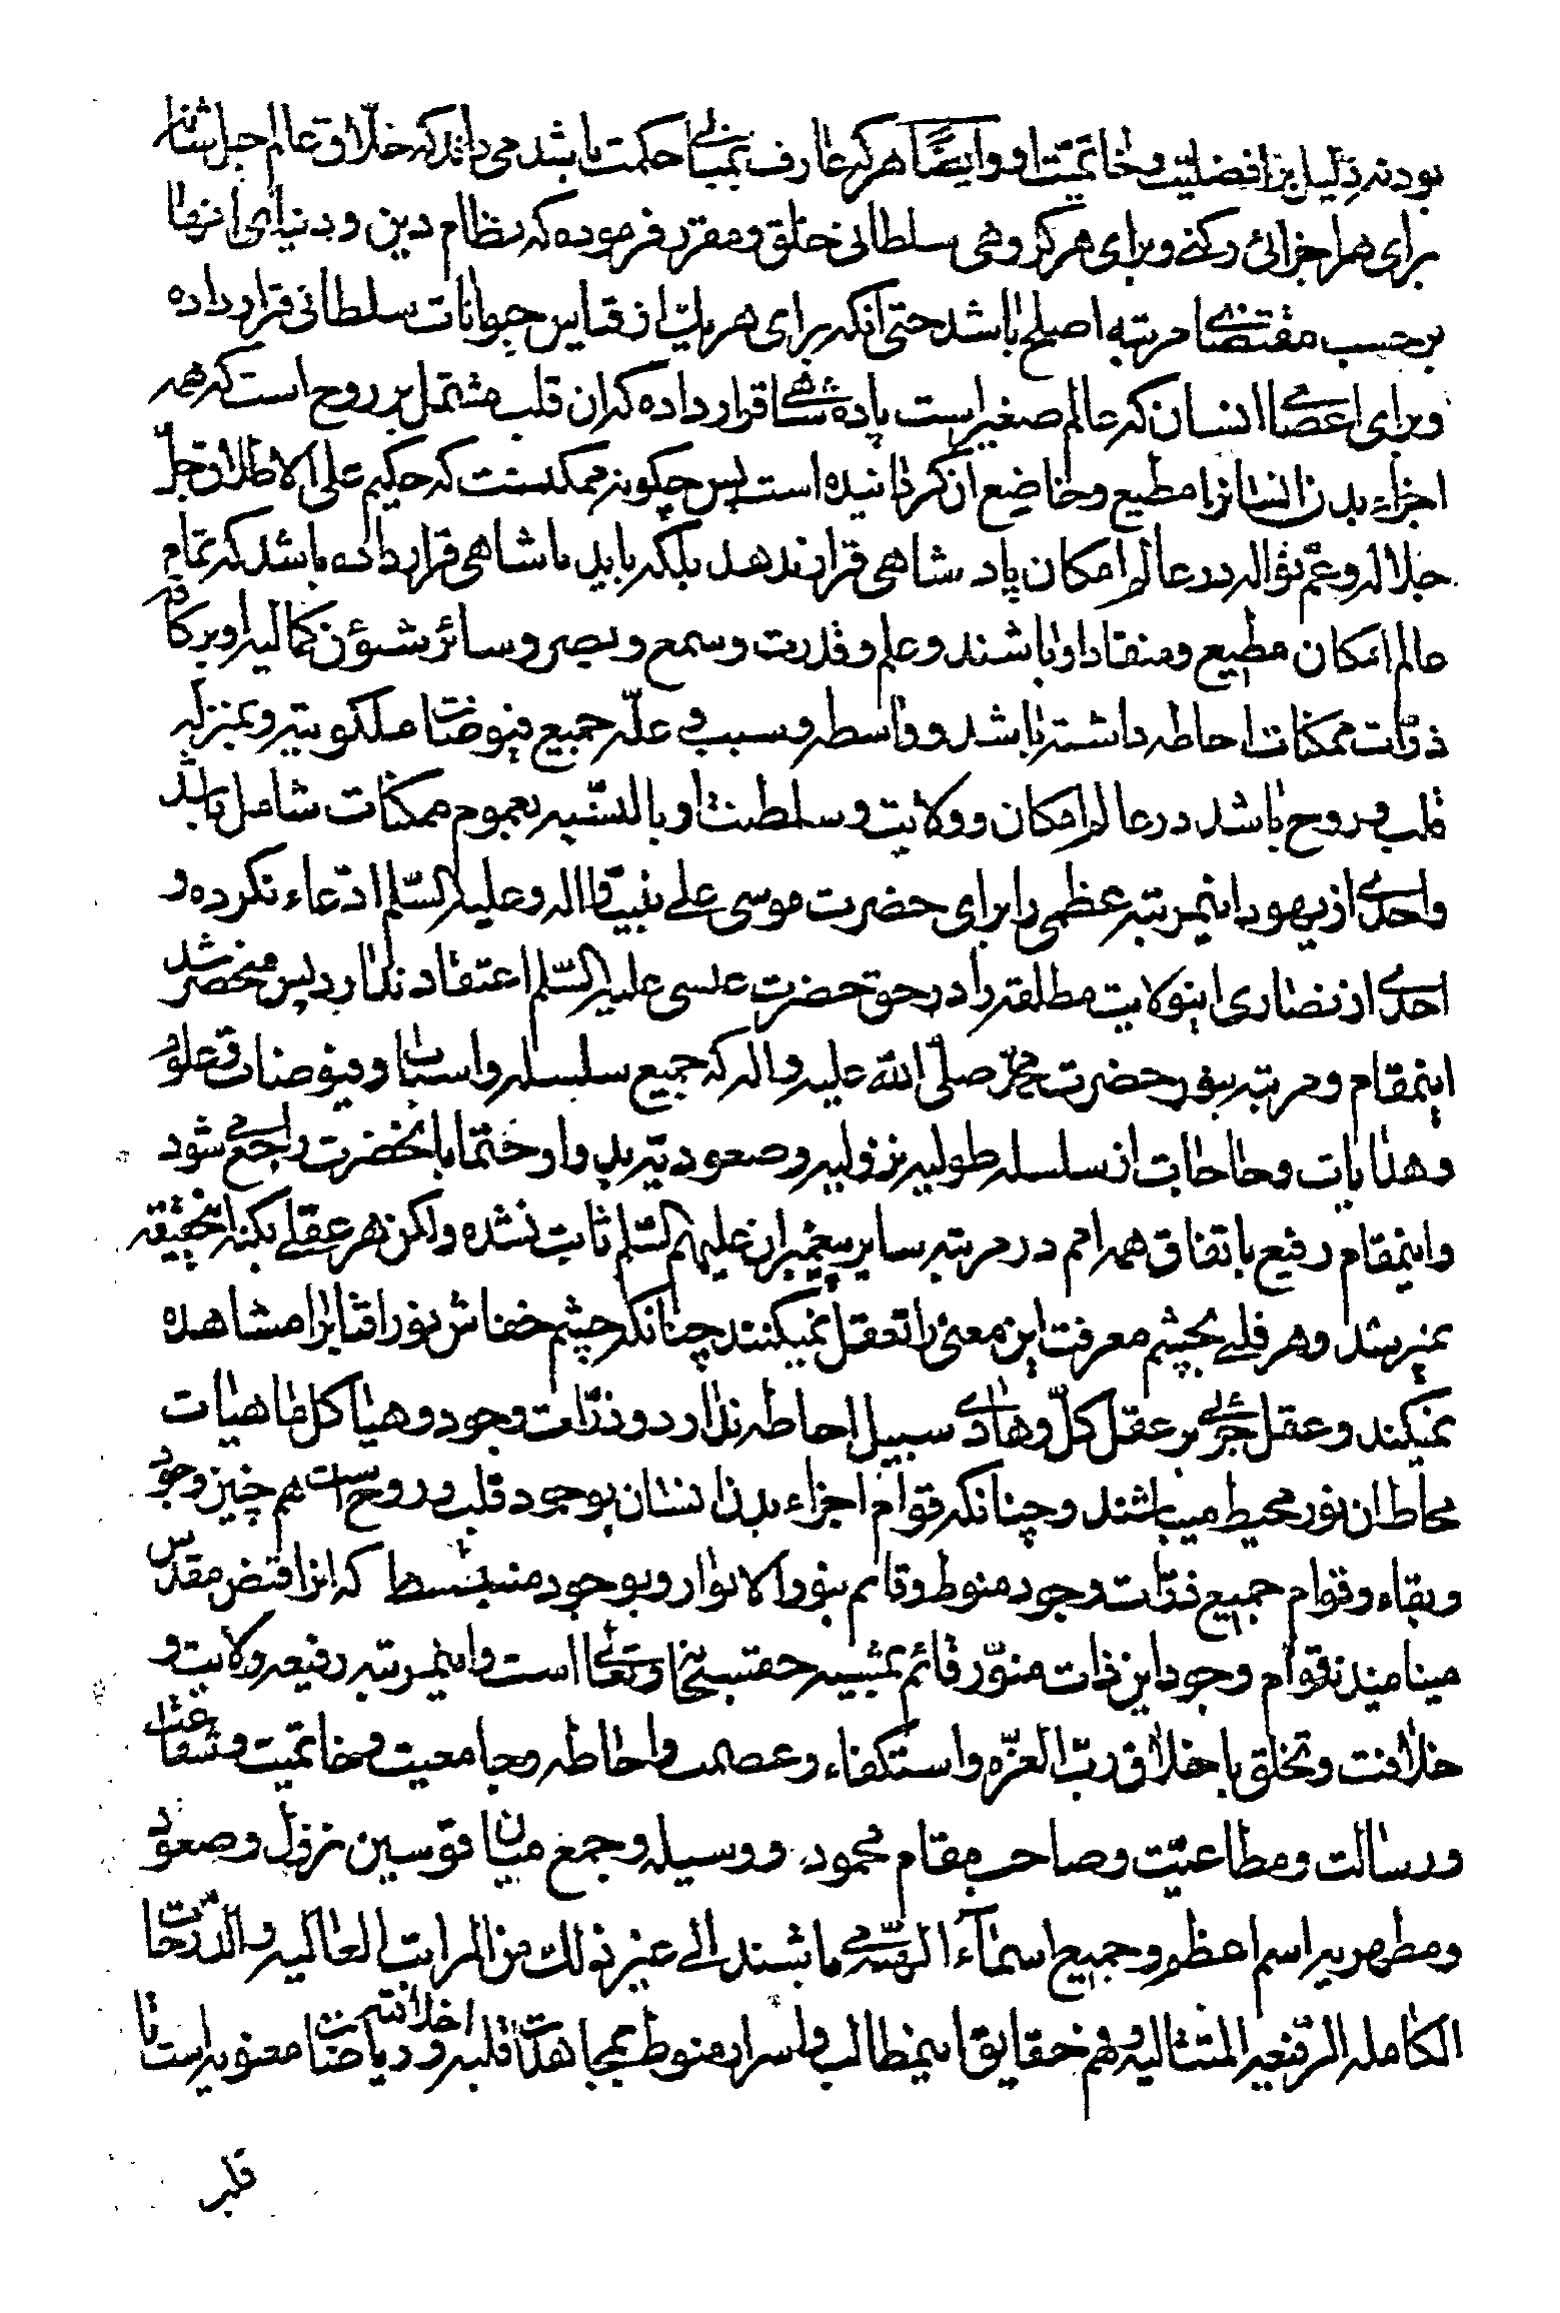 بودنه دلیل بر افضلیت و خاتمیت او و ایضا هر که عارف بمبانی حکمت باشد می‌داند که خلاق عالم جل شانه
برای هر اجزائی رکنی و برای هر گروهی سلطانی خلق و مقرر فرموده که نظام دین و دنیای انها
برحسب مقتضا مرتبه اصلح باشد حتی انکه برای هر یک از حیوانات سلطانی قرار داده
و برای اعضا انسان که عالم صغیر است پادشاهی قرار داده که ان قلب مشتمل بر روح است که همه
اجزاء بدن انسانرا مطیع و خاضع ان گردانیده است پس چکونه ممکنست که حکیم علی الاطلاق جل
جلاله و عم نواله در عالم امکان پادشاهی قرار ندهد بلکه باید پادشاهی قرار داده باشد که تمام
عالم امکان مطیع و منقاد او باشند و علم و قدرت و سمع و بصر و سائر شئون کمالیه او بر کافه
ذرات ممکنات احاطه داشته باشد و واسطه و سبب و علة جمیع فیوضات ملکوتیه و بمنزله
قلب و روح باشد در عالم امکان و ولایت و سلطنت او بالنسبه بعموم ممکنات شامل باشد
واحدی از یهود اینمرتبه عظمی را برای حضرت موسی علی نبینا و اله و علیه السلم ادعاء نکرده و
احدی از نصاری اینولایت مطلقه را در حق حضرت عیسی علیه السلم اعتقاد ندارد پس منحصر شد
اینمقام و مرتبه بنور حضرت محمد صلی الله علیه و اله که جمیع سلسله و اسباب و فیوضات و علوم
و هدایات و حاجات از سلسله طولیه نزولیه و صعودیه بدوا و ختما بانحضرت راجع شود
و اینمقام رفیع باتفاق همه امم در مرتبه سایر پیغمبران علیهم السلم ثابت نشده ولکن هر عقلی بکنه اینحقیقه
نمیرسد و هر قلبی بچشم معرفت این معنی را تعقل نمیکنند چنانکه چشم خفاش نور افتابرا مشاهده
نمیکند و عقل جزئی بر عقل کل و هادی سبیل احاطه ندارد و ذرات وجود و هیاکل ماهیات
محاط ان نور محیط میباشند و چنانکه قوام اجزاء بدن انسان بوجود قلب و روح است هم چنین وجود
و بقاء و قوام جمیع ذرات وجود منوط و قائم بنور الانوار و بوجود منبسط که انرا فیض مقدس
مینامیدند قوام وجود این ذات منور قائم بمشیه حقتعالی است و اینمرتبه رفیعه ولایت و
خلافت و تخلق باخلاق رب العزه و استکفاء و عصمت و احاطه و جامعیت و خاتمیت و شفاعت
و رسالت و مطاعیت و صاحب مقام محمود و وسیله و جمع میان قوسین نزول و صعود
و مظهریه اسم اعظم و جمیع اسماء الهیه باشند الی غیر ذلک من المراتب العالیه و الدرجات
الکامله الرفیعه المتثالیه و فهم حقایق اینمطالب و اسرار منوط بمجاهدات قلبیه و اخلاقیه و ریاضات معنویه است تا
قلبر